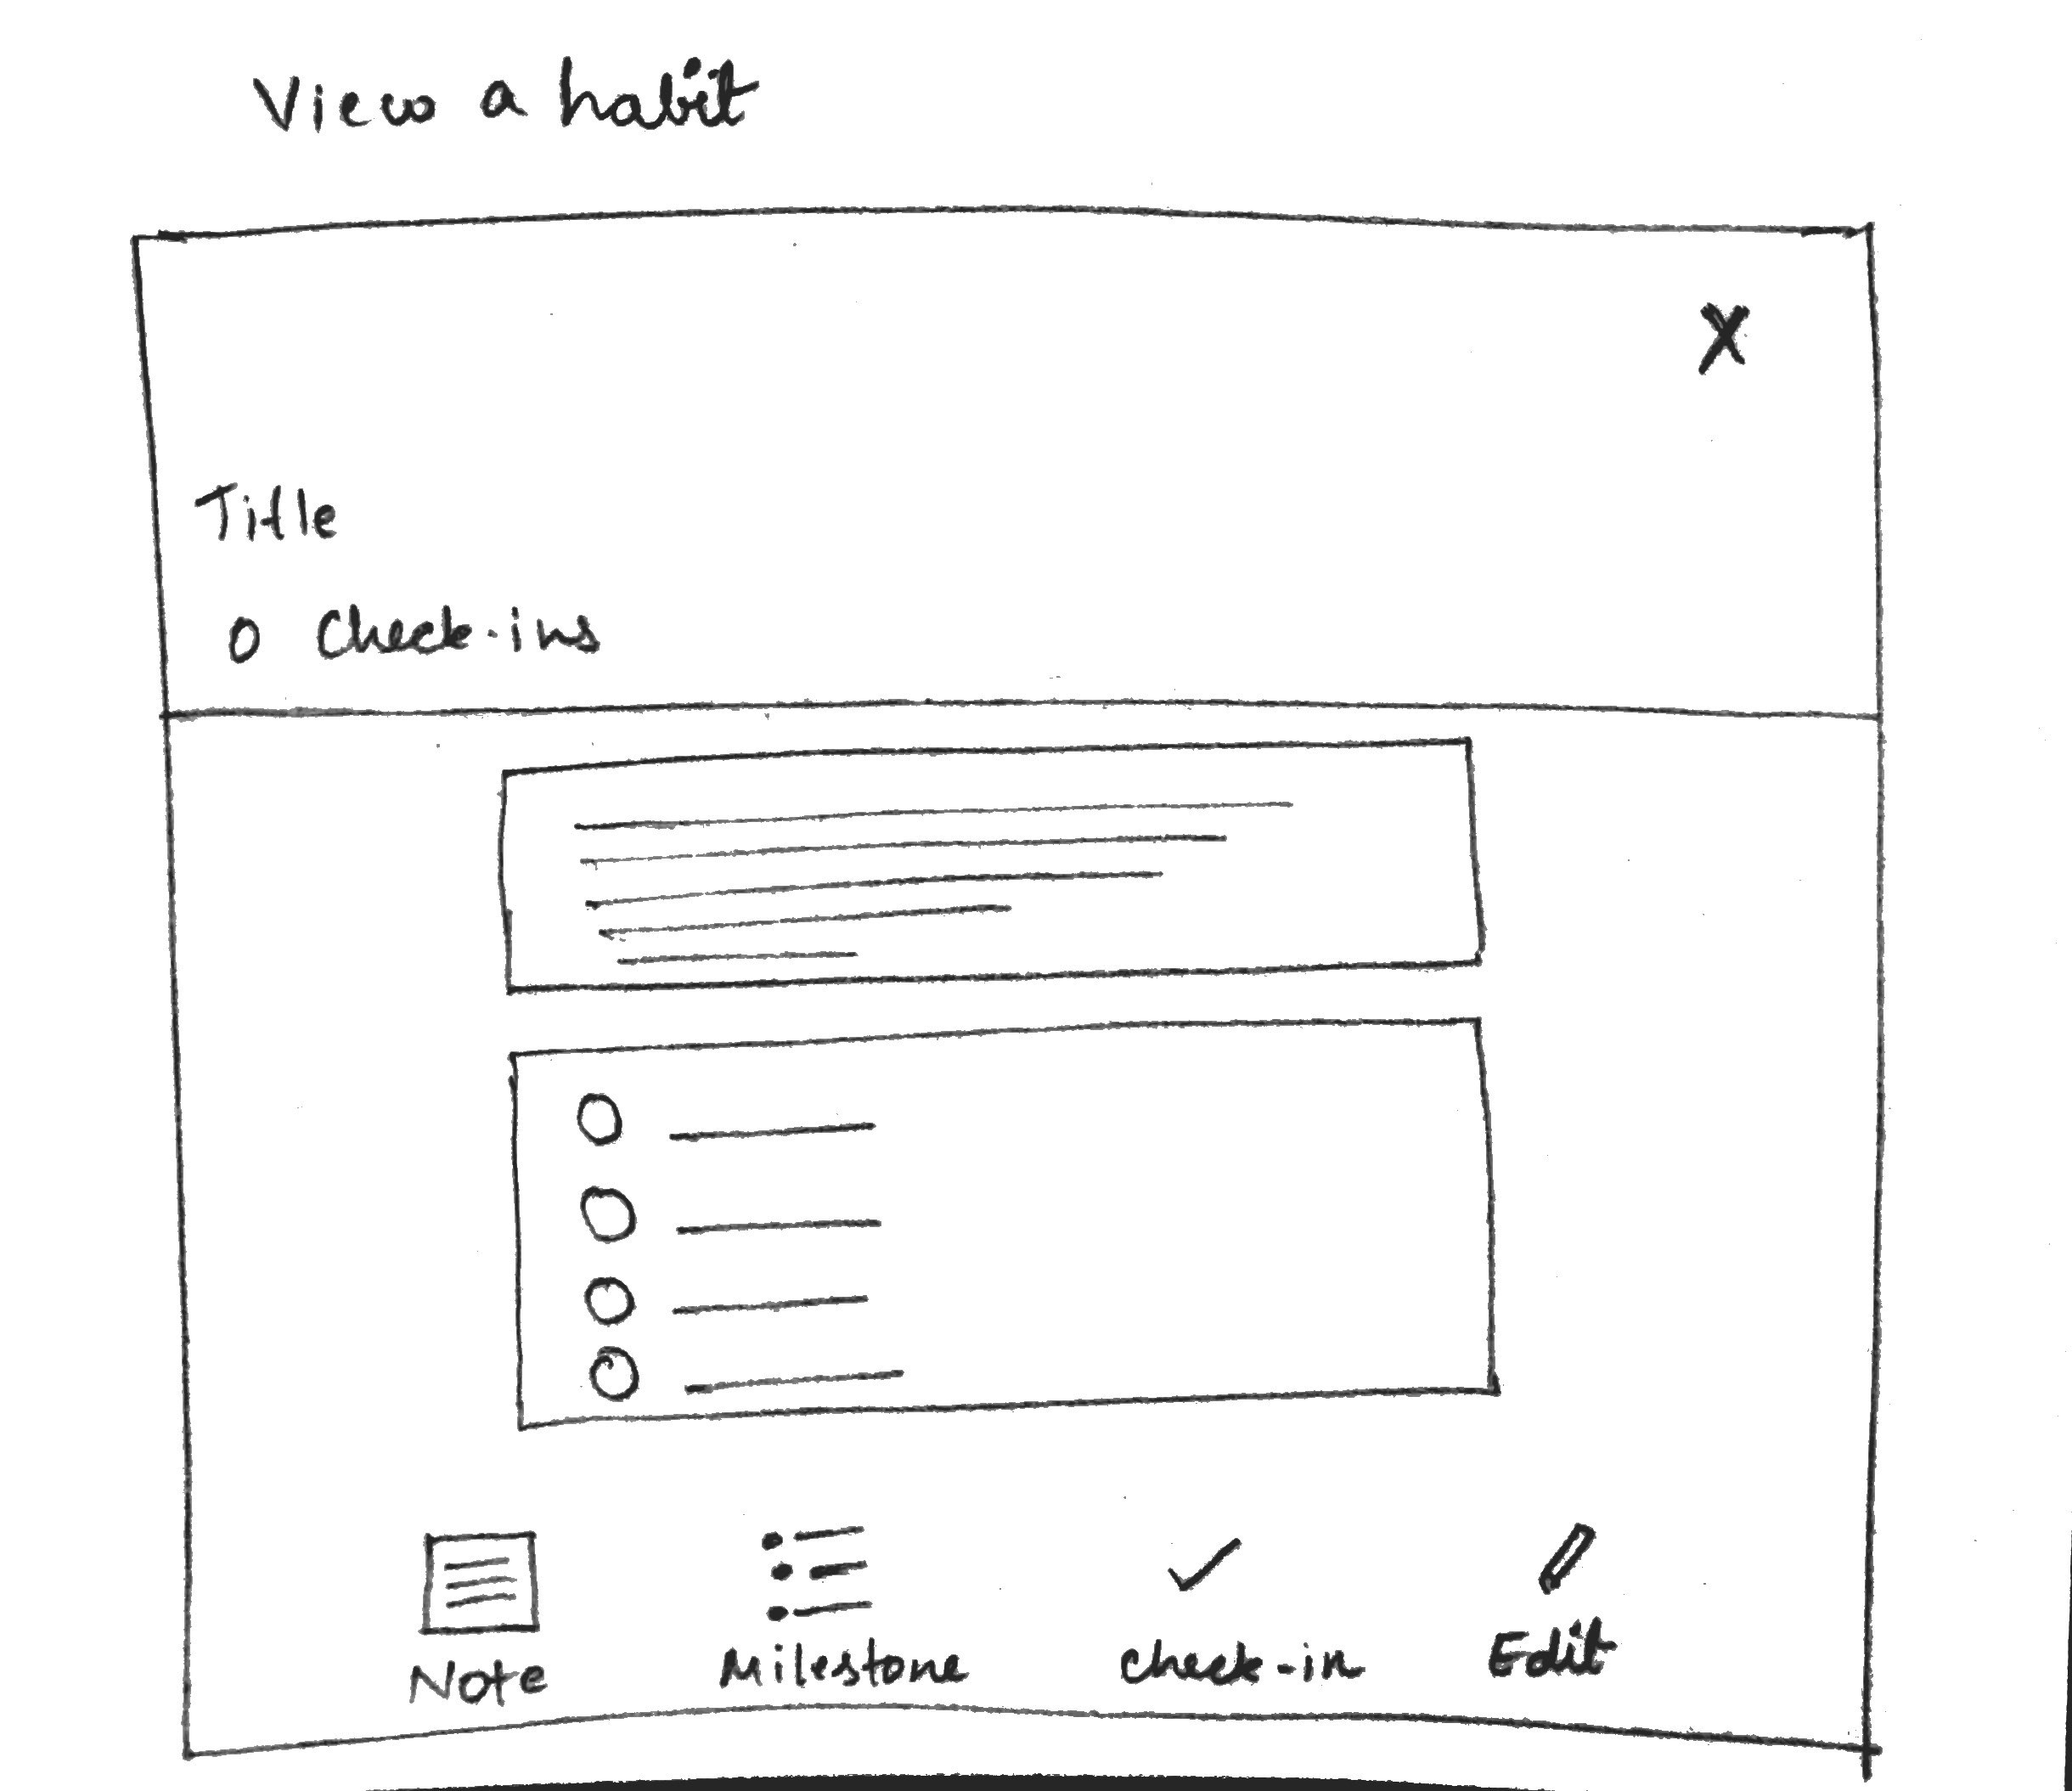 View a habit
X
Title
0 Check-ins
Note Milestone check-in Edit